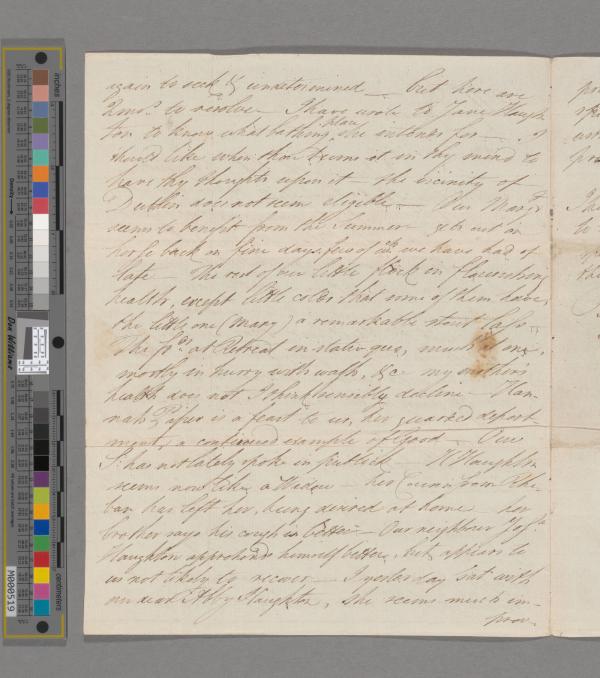 again to seek & undetermined — but here are
2mo.s to resolve I have wrote to Jane Haugh
ton to know what bathing place she intends for
should like when thou seems it in thy mind to
have thy thoughts upon it — the vicinity of
Dublin does not seem eligible — Our Mary
seems to benefit from the Summer gets out on
horse back on fine days, few of wch we have had of
late — The rest of our little flock in flourishing
health, except little colds that some of them have,
the little one (Mary) a remarkable stout lass
The at Retreat in statu quo, much as one,
mostly in hurry with wash, &c my mother's
health does not I think sensibly decline Han-
nah is a feast to us, her guarded deport-
ment, a continued example of good — Our
Sr. has not lately spoke in publick — H Haughton
seems now like a Widow — her Cousin from Rhe-
ban has left her, being desired at home — her
brother says his cough is better — Our neighbour Josa.
Haughton apprehends himself better, but appears to
us not likely to recover — I yesterday sat with
our dear Abby Haughton, she seems much im-
prov-
inches
centimeters
Density
Don Williams
M000519